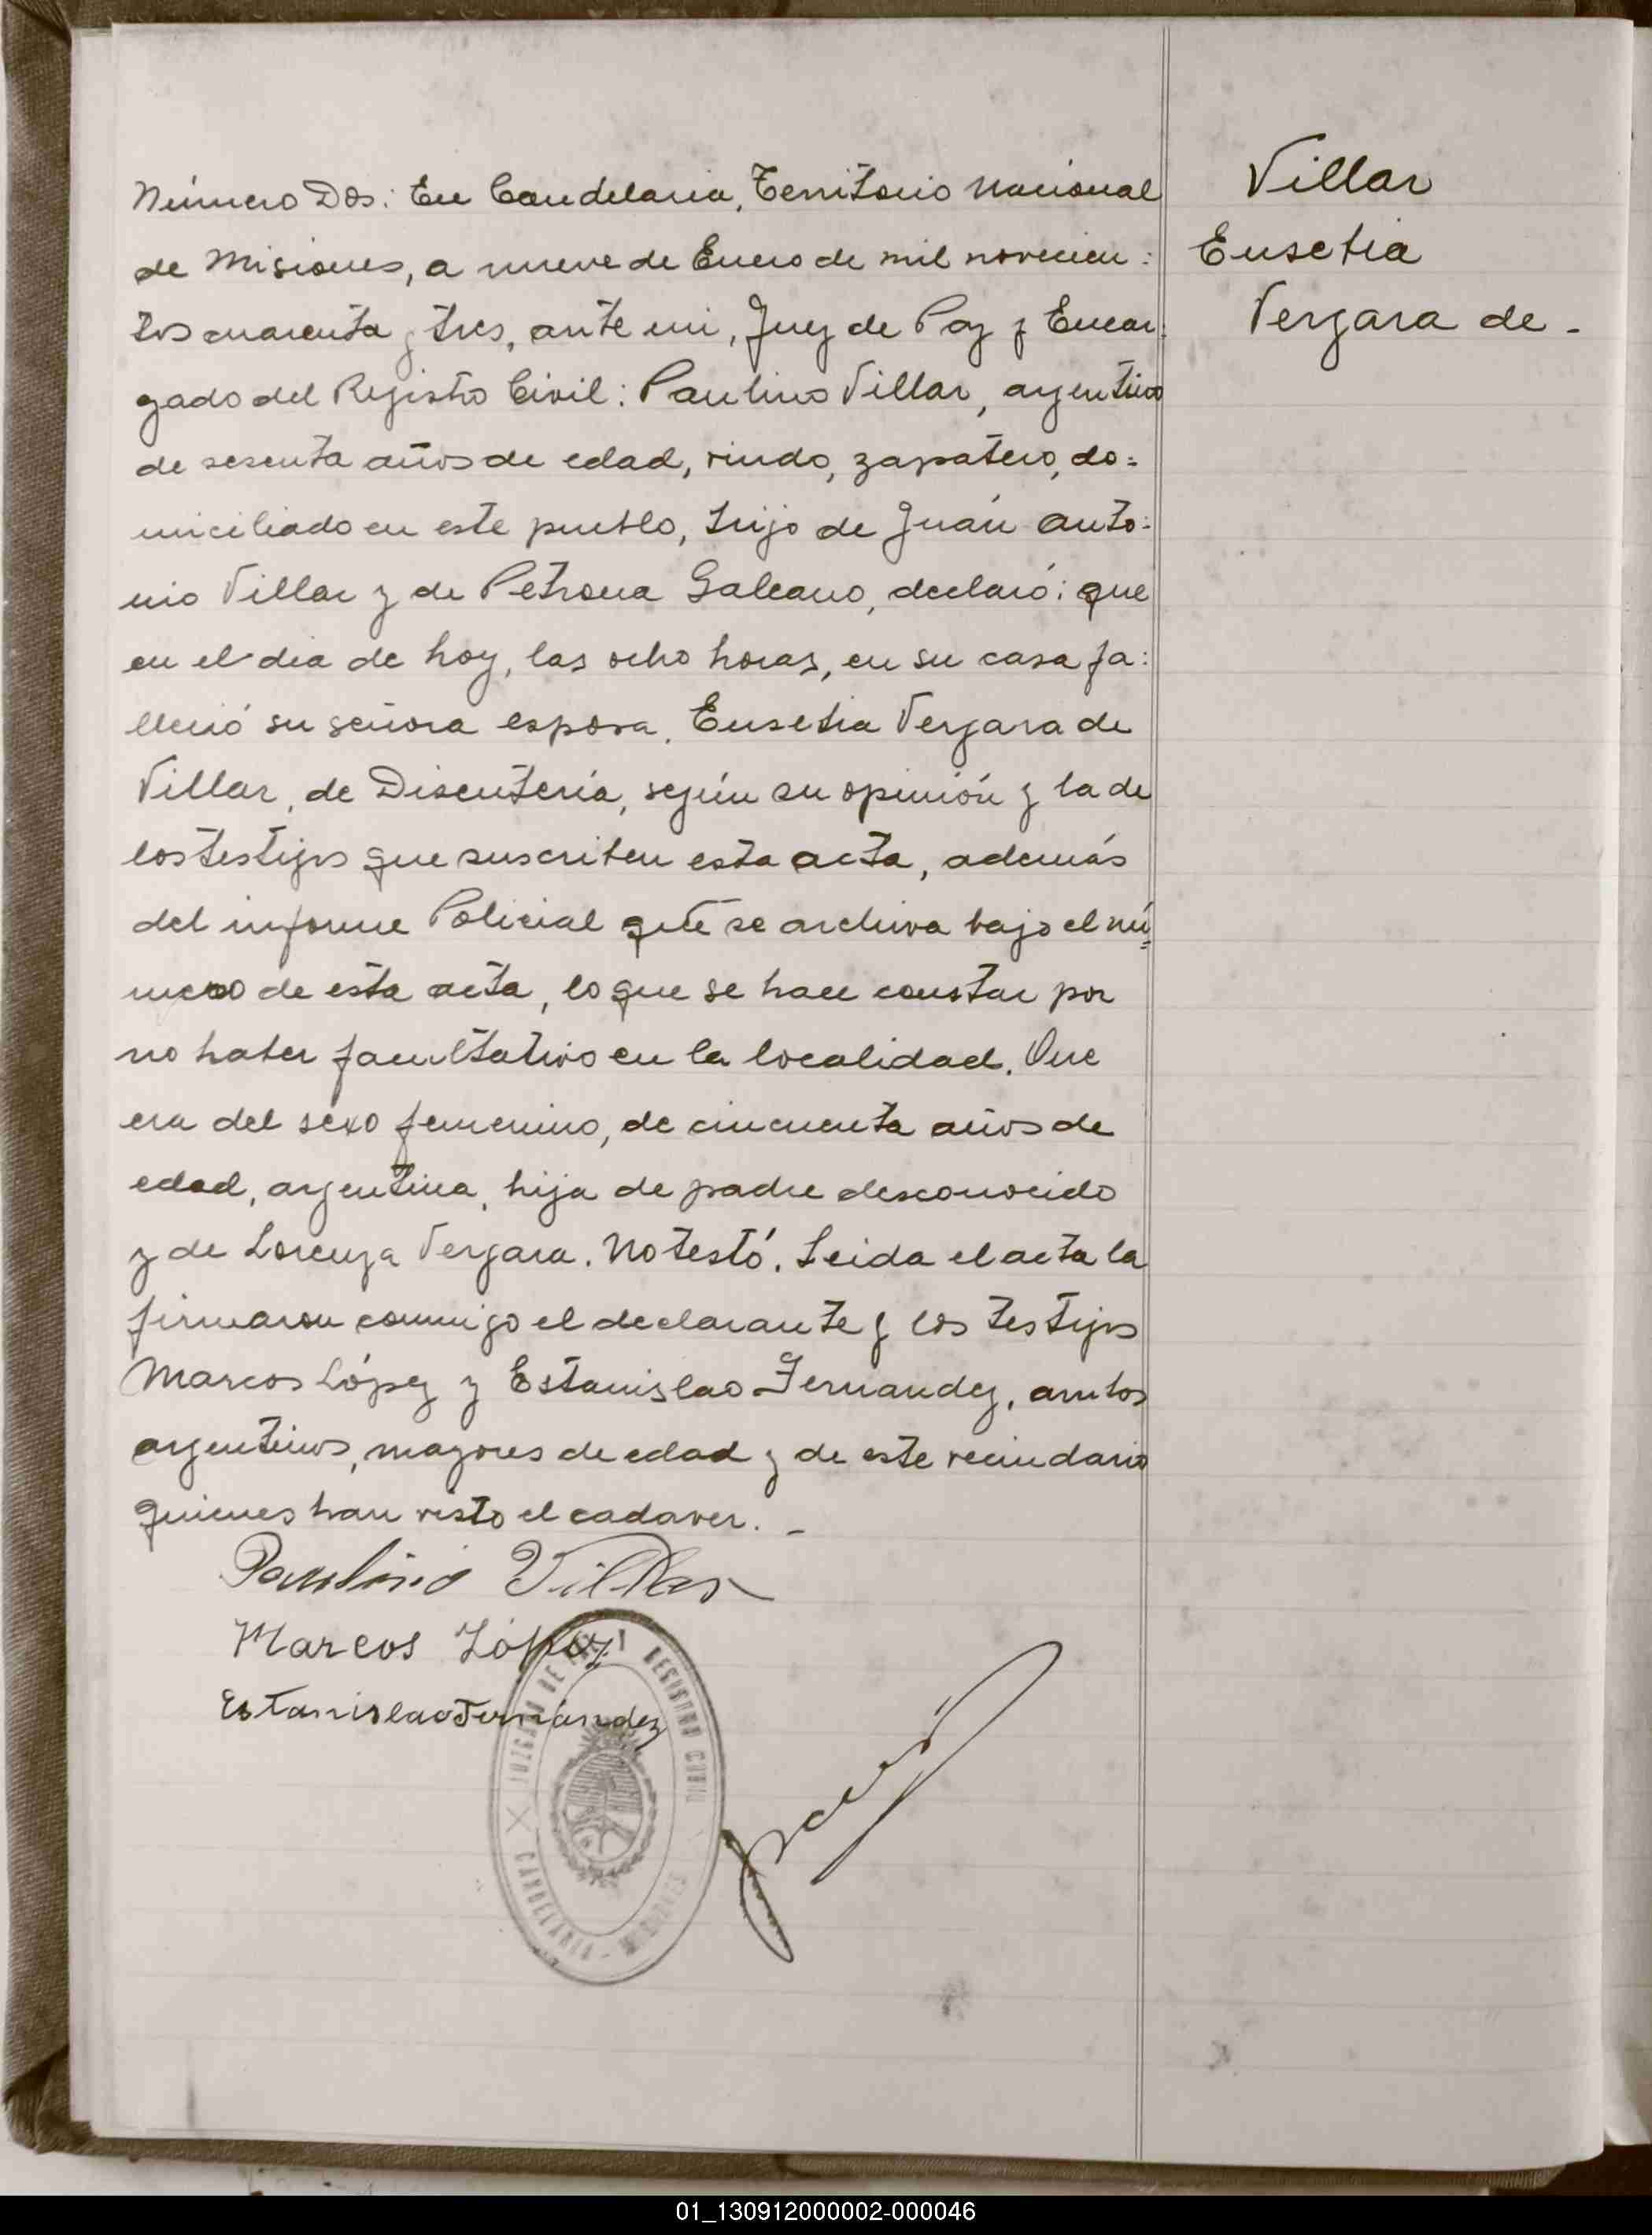 Número Dos: En Candelaria, Territorio Nacional
de Misiones, a nueve de Enero de mil novecien:
tos cuarenta y tres, ante mi, Juez de Paz y Encar:
gado del Registro Civil: Paulino Villar, argentino
de sesenta años de edad, viudo, zapatero, do=
miciliado en este pueblo, hijo de Juán Anto:
nio Villar y de Petrona Galeano, declaró: que
en el dia de hoy, las ocho horas, en su casa fa:
lleció su señora esposa, Eusebia Vergara de
Villar, de Disentería, según su opinión y la de
los testigos que suscriben esta acta, además
del informe Policial que se archiva bajo el nú=
mero de esta acta, lo que se hace constar por
no haber facultativo en la localidad. Que
era del sexo femenino, de cincuenta años de
edad, argentina, hija de padre desconocido
y de Lorenza Vergara. No testó. Leida el acta la
firmaron conmigo el declarante y los testigos
Marcos López y Estanislao Fernandez, ambos
argentinos, mayores de edad y de este vecindario
quienes han visto el cadaver. -
Paulino Villar
Marcos López
Estanislao Fernández
JUZGADO DE PAZ Y REGISTRO CIVIL
CANDELARIA - MISIONES
Villar
Eusebia
Vergara de -
01_130912000002-000046